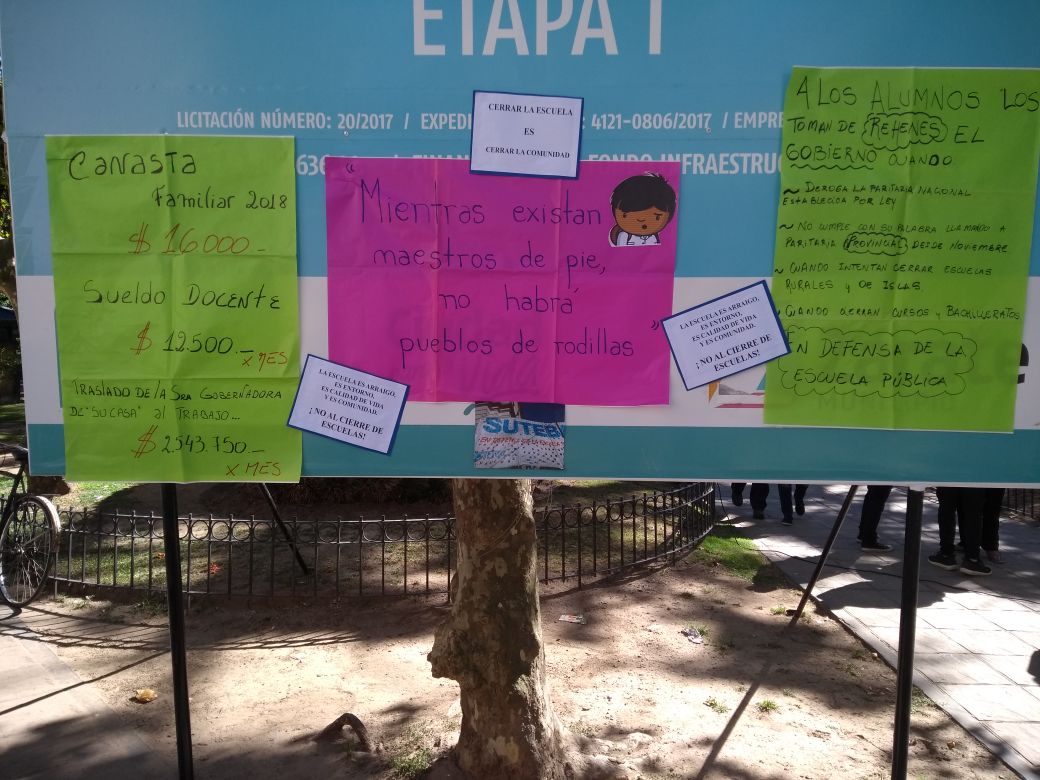 ETAPA 1
LICITACIÓN NÚMERO: 20/2017 / EXPEDI : 4121-0806/2017 / EMPRE
FONDO INFRAESTRUC
CERRAR LA ESCUELA
ES
CERRAR LA COMUNIDAD
CANASTA
Familiar 2018
$ 16000.-
Sueldo DOCENTE
$ 12.500.-
X MES
TRASLADO DE LA SRA GOBERNADORA
DE "SU CASA" al TRABAJO...
$ 2.543.750.-
X MES
"Mientras existan
maestros de pie,
no habrá
pueblos de rodillas"
LA ESCUELA ES ARRAIGO,
ES ENTORNO,
ES CALIDAD DE VIDA
Y ES COMUNIDAD.
¡NO AL CIERRE DE
ESCUELAS!
LA ESCUELA ES ARRAIGO,
ES ENTORNO,
ES CALIDAD DE VIDA
Y ES COMUNIDAD.
¡NO AL CIERRE DE
ESCUELAS!
SUTEBA
A LOS ALUMNOS LOS
TOMAN DE REHENES EL
GOBIERNO CUANDO:
~ DEROGA LA PARITARIA NACIONAL
ESTABLECIDA POR LEY
~ NO CUMPLE CON SU PALABRA LLAMADO A
PARITARIA PROVINCIAL DESDE NOVIEMBRE.
~ CUANDO INTENTAN CERRAR ESCUELAS
RURALES y DE ISLAS
~ CUANDO CIERRAN CURSOS y BACHILLERATOS
EN DEFENSA DE LA
ESCUELA PÚBLICA